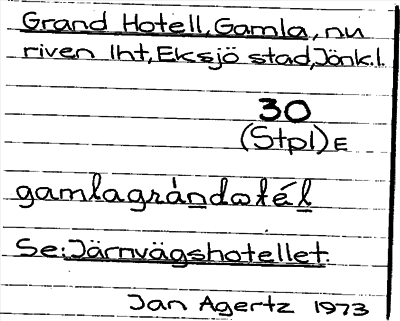 Grand Hotell, Gamla, nu
riven lht, Eksjö stad, Jönk.l.
30
(Stpl) E
gamlagrànd⍵tél
Se: Järnvägshotellet.
Jan Agertz 1973